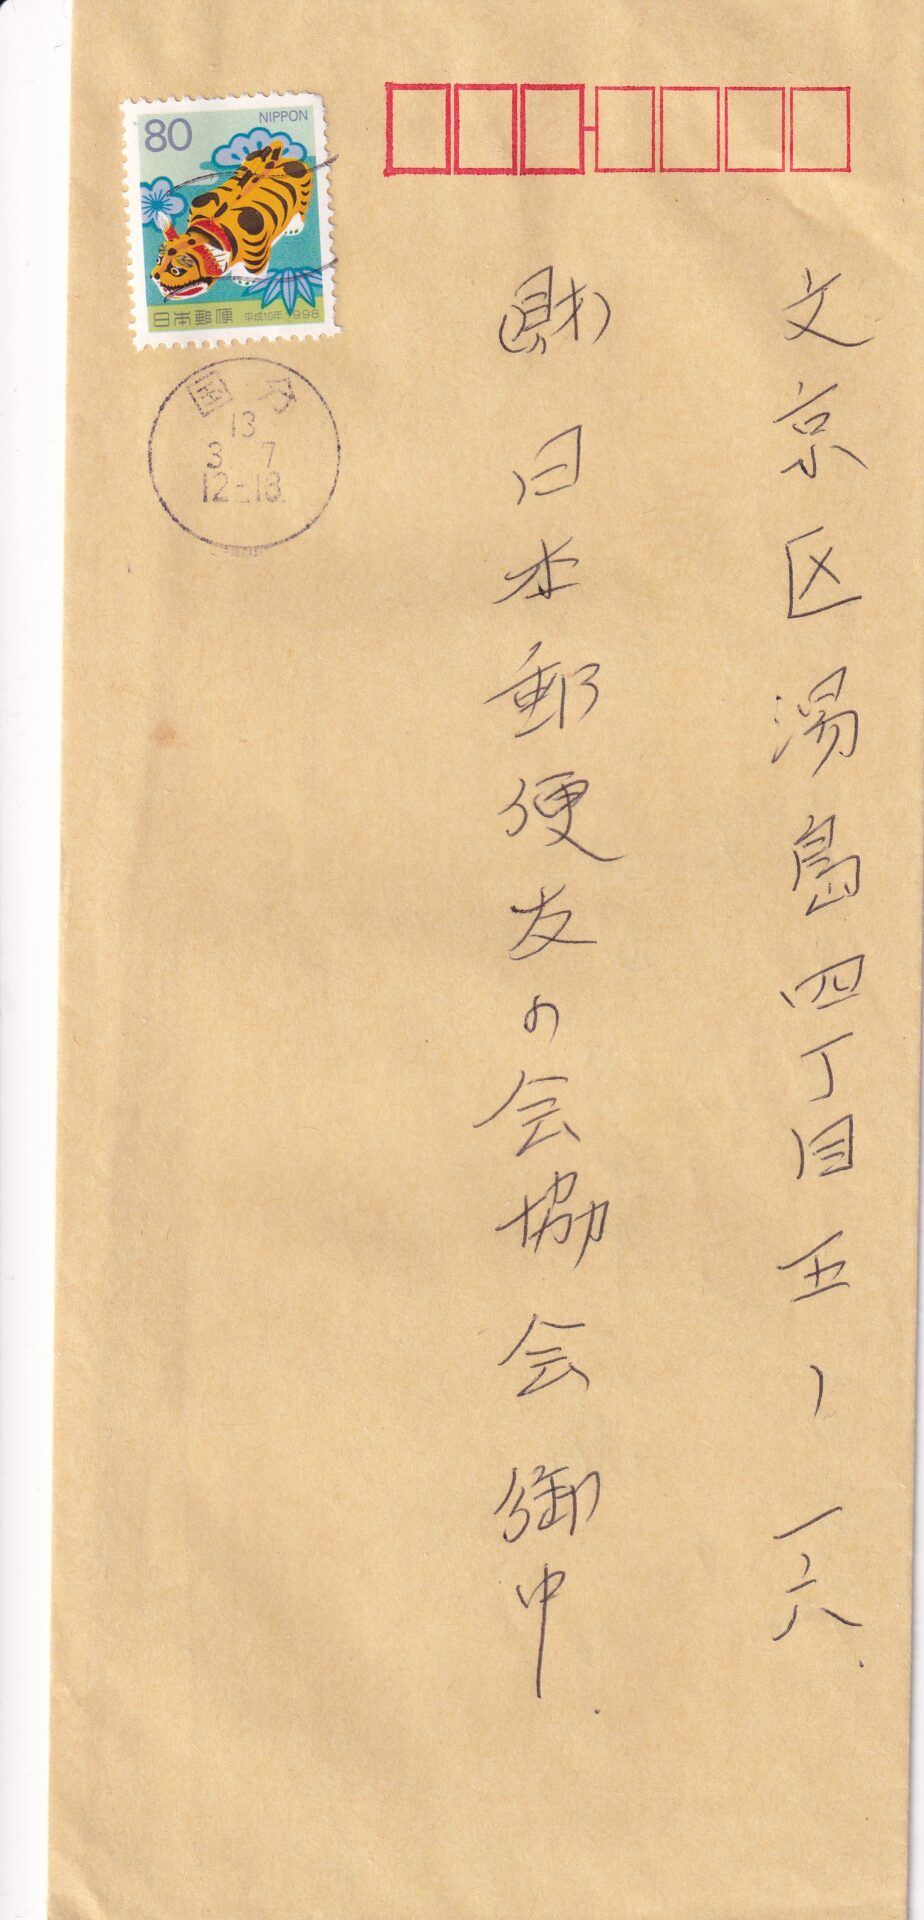 80
NIPPON
日本郵便 平成10年 1998
国分
13
3 7
12-18
文京区湯島四丁目五ー一六
(財)日本郵便友の会協会御中